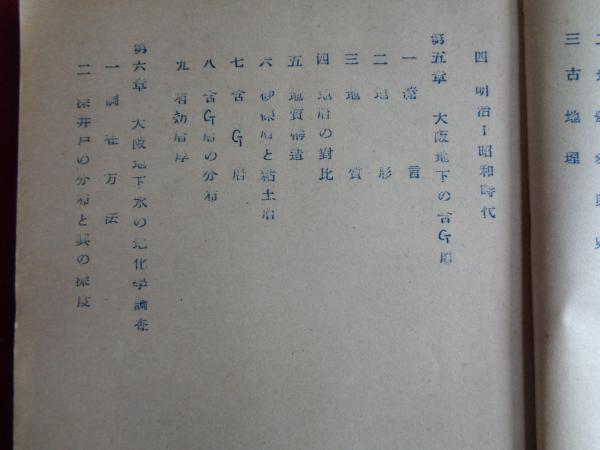 三 古地理
四 明治ー昭和時代
第五章 大阪地下の含G層
一 緒言
二 地形
三 地質
四 地層の對比
五 地質構造
六 砂礫層と粘土層
七 含G層
八 含G層の分布
九 有効層厚
第六章 大阪地下水の地化学調査
一 調査方法
二 深井戸の分布と其の深度